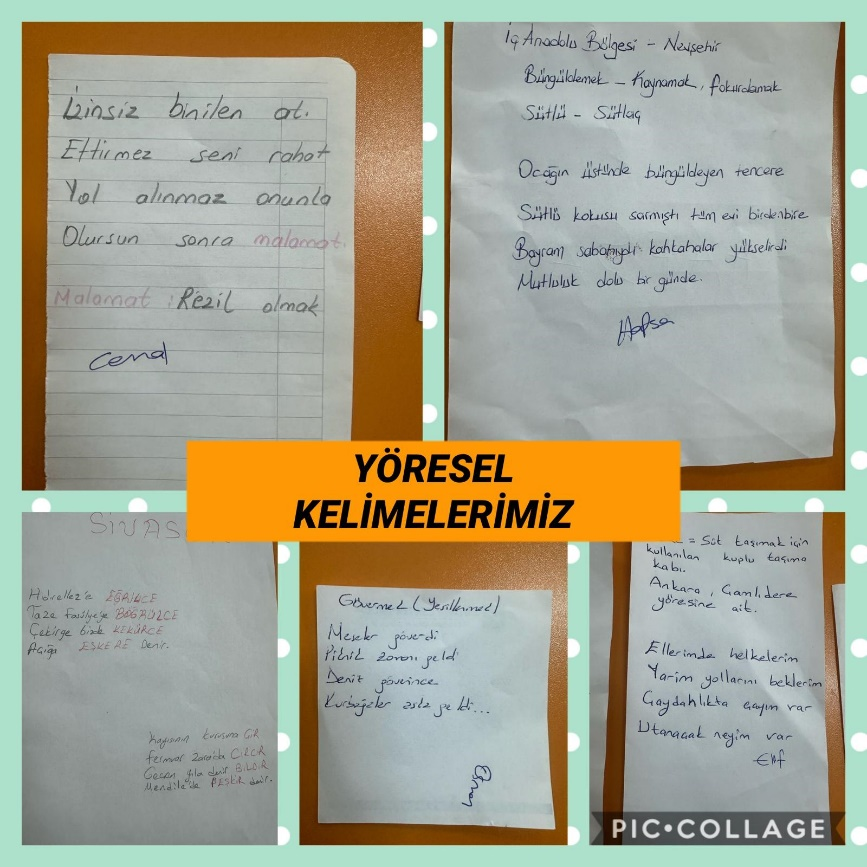 İzinsiz binilen at.
Ettirmez seni rahat
Yol alınmaz onunla
Olursun sonra malamat.
Malamat : Rezil olmak
Cemal
İç Anadolu Bölgesi - Nevşehir
Büngüldemek - Kaynamak, fokurdamak
Sütlü - Sütlaç
Ocağın üstünde büngüldeyen tencere
Sütlü kokusu sarmıştı tüm evi birdenbire
Bayram sabahıydı kahkahalar yükselirdi
Mutluluk dolu bir günde.
Hafsa
YÖRESEL
KELİMELERİMİZ
SİVAS
Hıdrellez'e EĞRİLCE
Taze fasülyeye BÖĞRÜLCE
Çekirge bizde KEKÜRCE
Açığa ESKERE Denir.
Kayısının kurusuna ÇİR
Fermuar zararda CIRCIR
Geçen yıla denir BILDIR
Mendile'de PEŞKİR denir.
Gövermek (Yeşillenmek)
Meşeler göverdi
Piknik zamanı geldi
Deniz göverince
Kurbağalar aşka geldi...
= Süt taşımak için
kullanılan kulplu taşıma
kabı.
Ankara, Çamlıdere
yöresine ait.
Ellerimde helkelerim
Yarim yollarını beklerim
Gaydahlıkta gayın var
Utanacak neyim var
Elif
PIC•COLLAGE